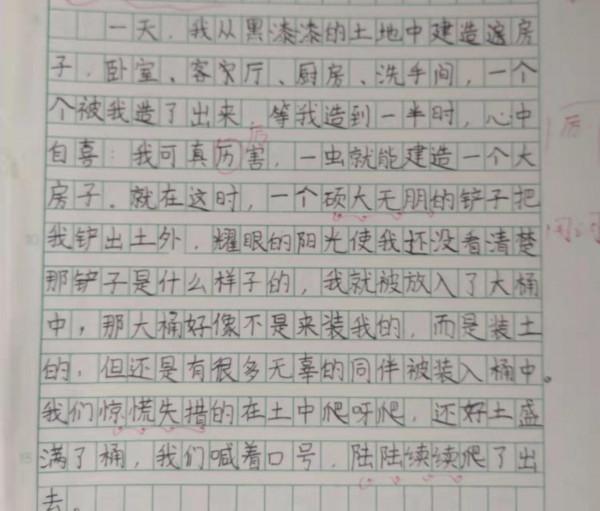 一天,我从黑漆漆的土地中建造逸房
子,卧室、客家厅、厨房、洗手间,一个
个被我造了出来,等我造到一半时,心中
自喜:我可真厉害,一虫就能建造一个大
厉
厉
房子。就在这时,一个硕大无朋的铲子把
我铲出土外,耀眼的阳光使我还没看清楚
那铲子是什么样子的,我就被放入了大桶
中,那大桶好像不是来装我的,而是装土
的,但还是有很多无辜的同伴被装入桶中。
我们惊慌失措的在土中爬呀爬,还好土盛
满了桶,我们喊着口号,陆陆续续爬了出
去。